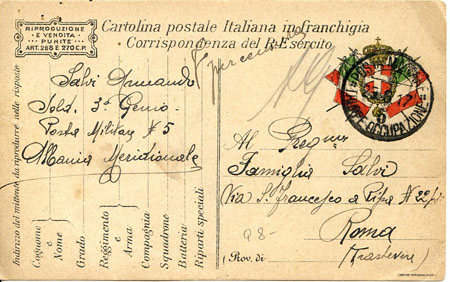 RIPRODUZIONE
E VENDITA
PUNITE
ART. 268 E 270 C.P.
Cartolina postale Italiana in franchigia
Corrispondenza del R. Esercito
Indirizzo del mittente da riprodurre nelle risposte
Cognome e Nome
Grado
Reggimento e Arma
Compagnia
Squadrone
Batteria
Riparti speciali
Salvi Armando
Sold. 3° Genio
Posta Militare N 5
Albania Meridionale
OCCUPAZIONE
Al Pregma
Famiglia Salvi
Via S. Francesco a Ripa N 20
Roma
(Prov. di (Trastevere)